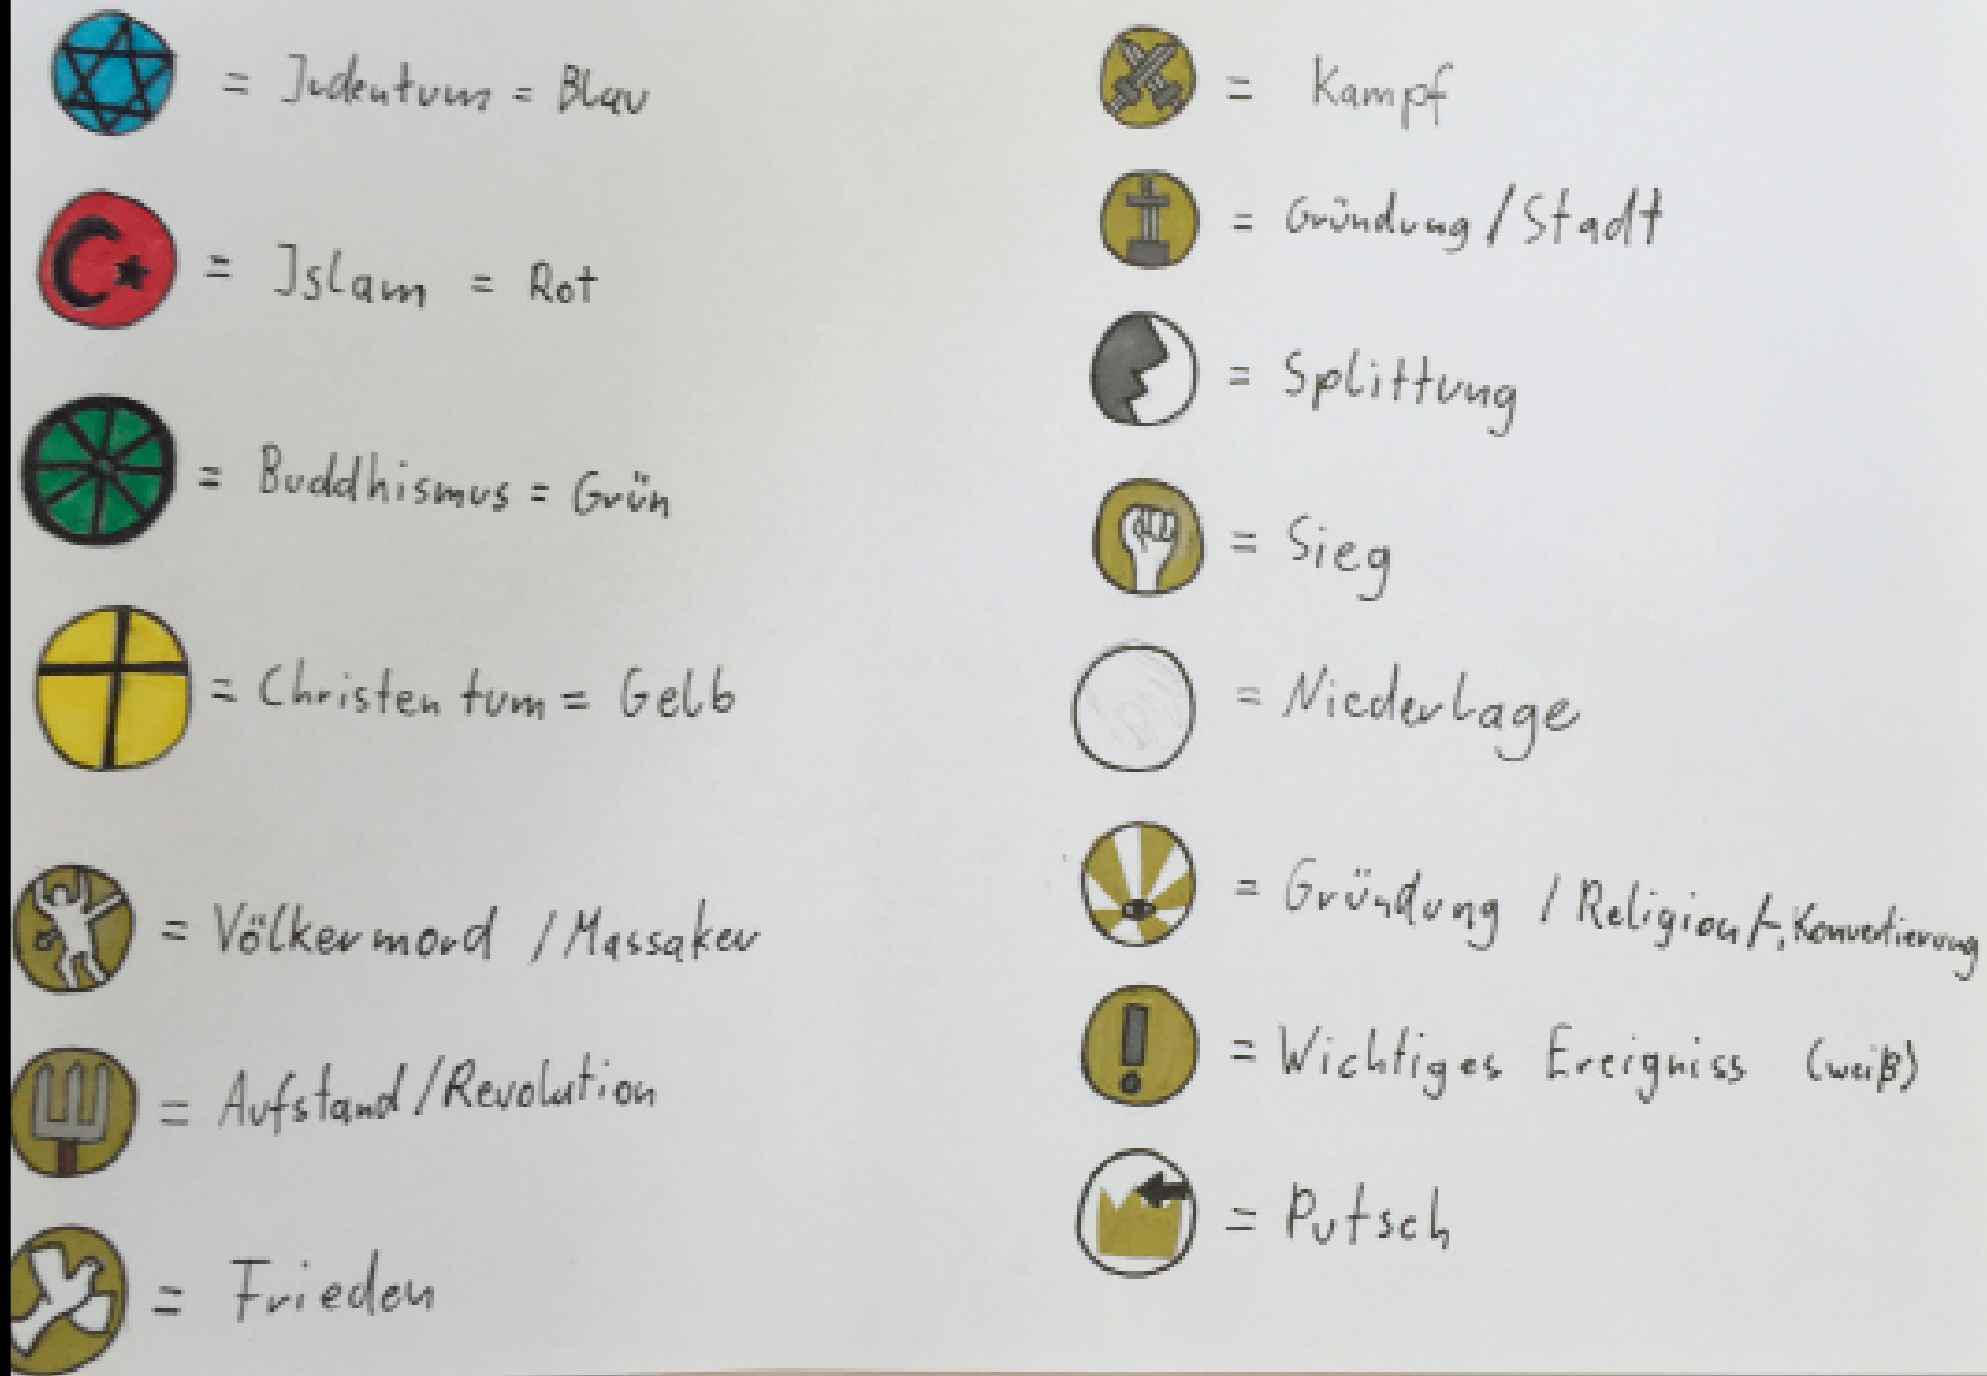 = Judentum = Blau
= Islam = Rot
= Buddhismus = Grün
= Christentum = Gelb
= Völkermord / Massaker
= Aufstand / Revolution
= Frieden
= Kampf
= Gründung / Stadt
= Splittung
= Sieg
= Niederlage
= Gründung / Religion /-, Konvertierung
= Wichtiges Ereigniss (weiß)
= Putsch